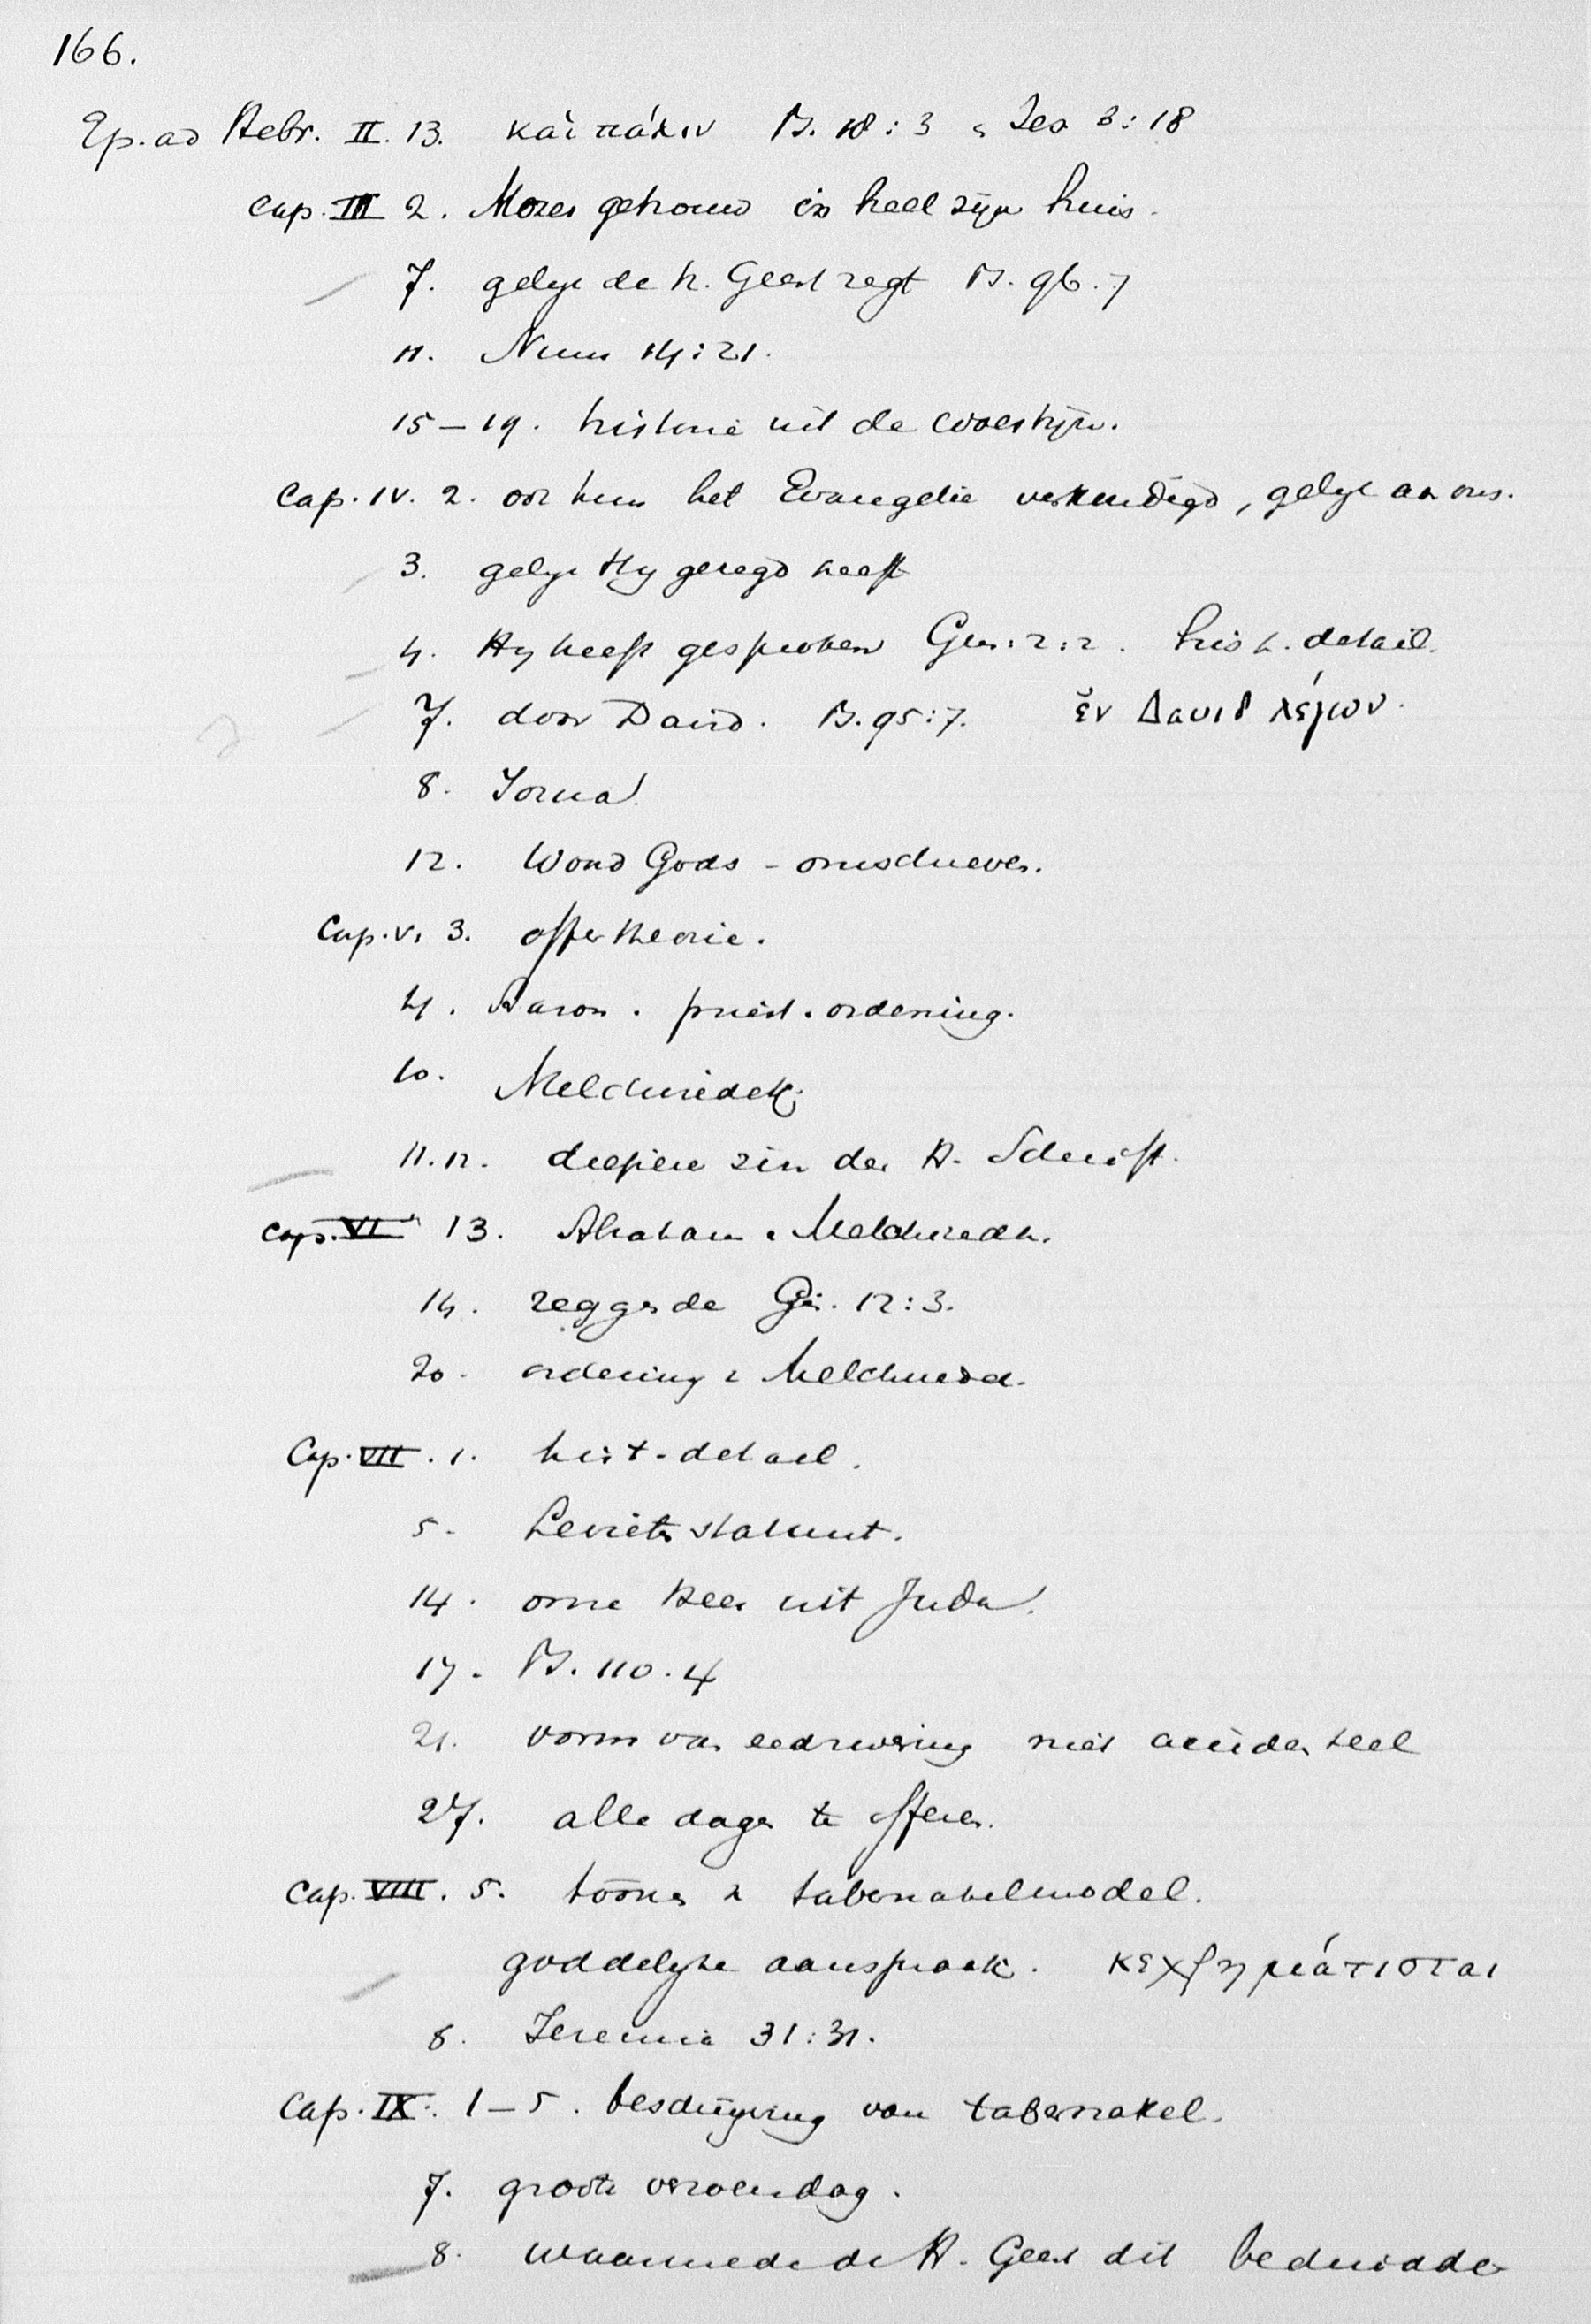 166.
Ep. ad Hebr. II. 13. καὶ πάλιν Ps. 18:3 Jes 8:18
Cap. III 2. Mozes getrouw in heel zijn huis.
7. gelijk de H. Geest zegt Ps. 96.7
11. Num 14:21.
15–19. historie uit de woestijn.
Cap. IV. 2. ook hun het Evangelie verkondigd, gelijk aan ons.
3. gelijk Hij gezegd heeft
4. Hij heeft gesproken Gen: 2:2. hist. detail.
7. door David. Ps. 95:7. ἐν Δαυιδ λέγων.
8. Jozua.
12. Woord Gods – omschreven.
Cap. V. 3. offertheorie.
4. Aaron. priest. ordening.
10. Melchizedek.
11.12. diepere zin der H. Schrift.
Cap. VI 13. Abraham Melchizedek.
14. zeggende Gen. 12:3.
20. ordening v Melchizedek.
Cap. VII. 1. hist-detail.
5. Leviet. statuut.
14. onze Heer uit Juda.
17. Ps. 110.4
21. vorm van eedzwering niet accidenteel
27. alle dagen te offeren.
Cap. VIII. 5. toonen v tabernakelmodel.
goddelijke aanspraak. κεχρημάτισται
8. Jeremia 31:31.
Cap. IX. 1–5. beschrijving van tabernakel.
7. groote verzoendag.
8. waarmede de H. Geest dit beduidde